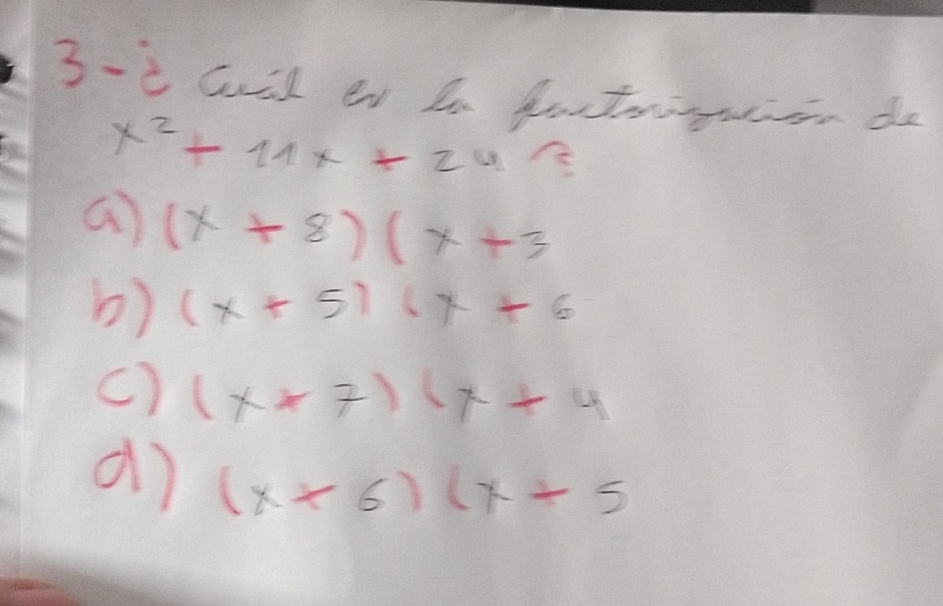 3-¿ Cuál es la factorización de
x² + 11x + 24 ?
a) (x + 8) (x + 3
b) (x + 5) (x + 6
c) (x + 7) (x + 4
d) (x + 6) (x + 5